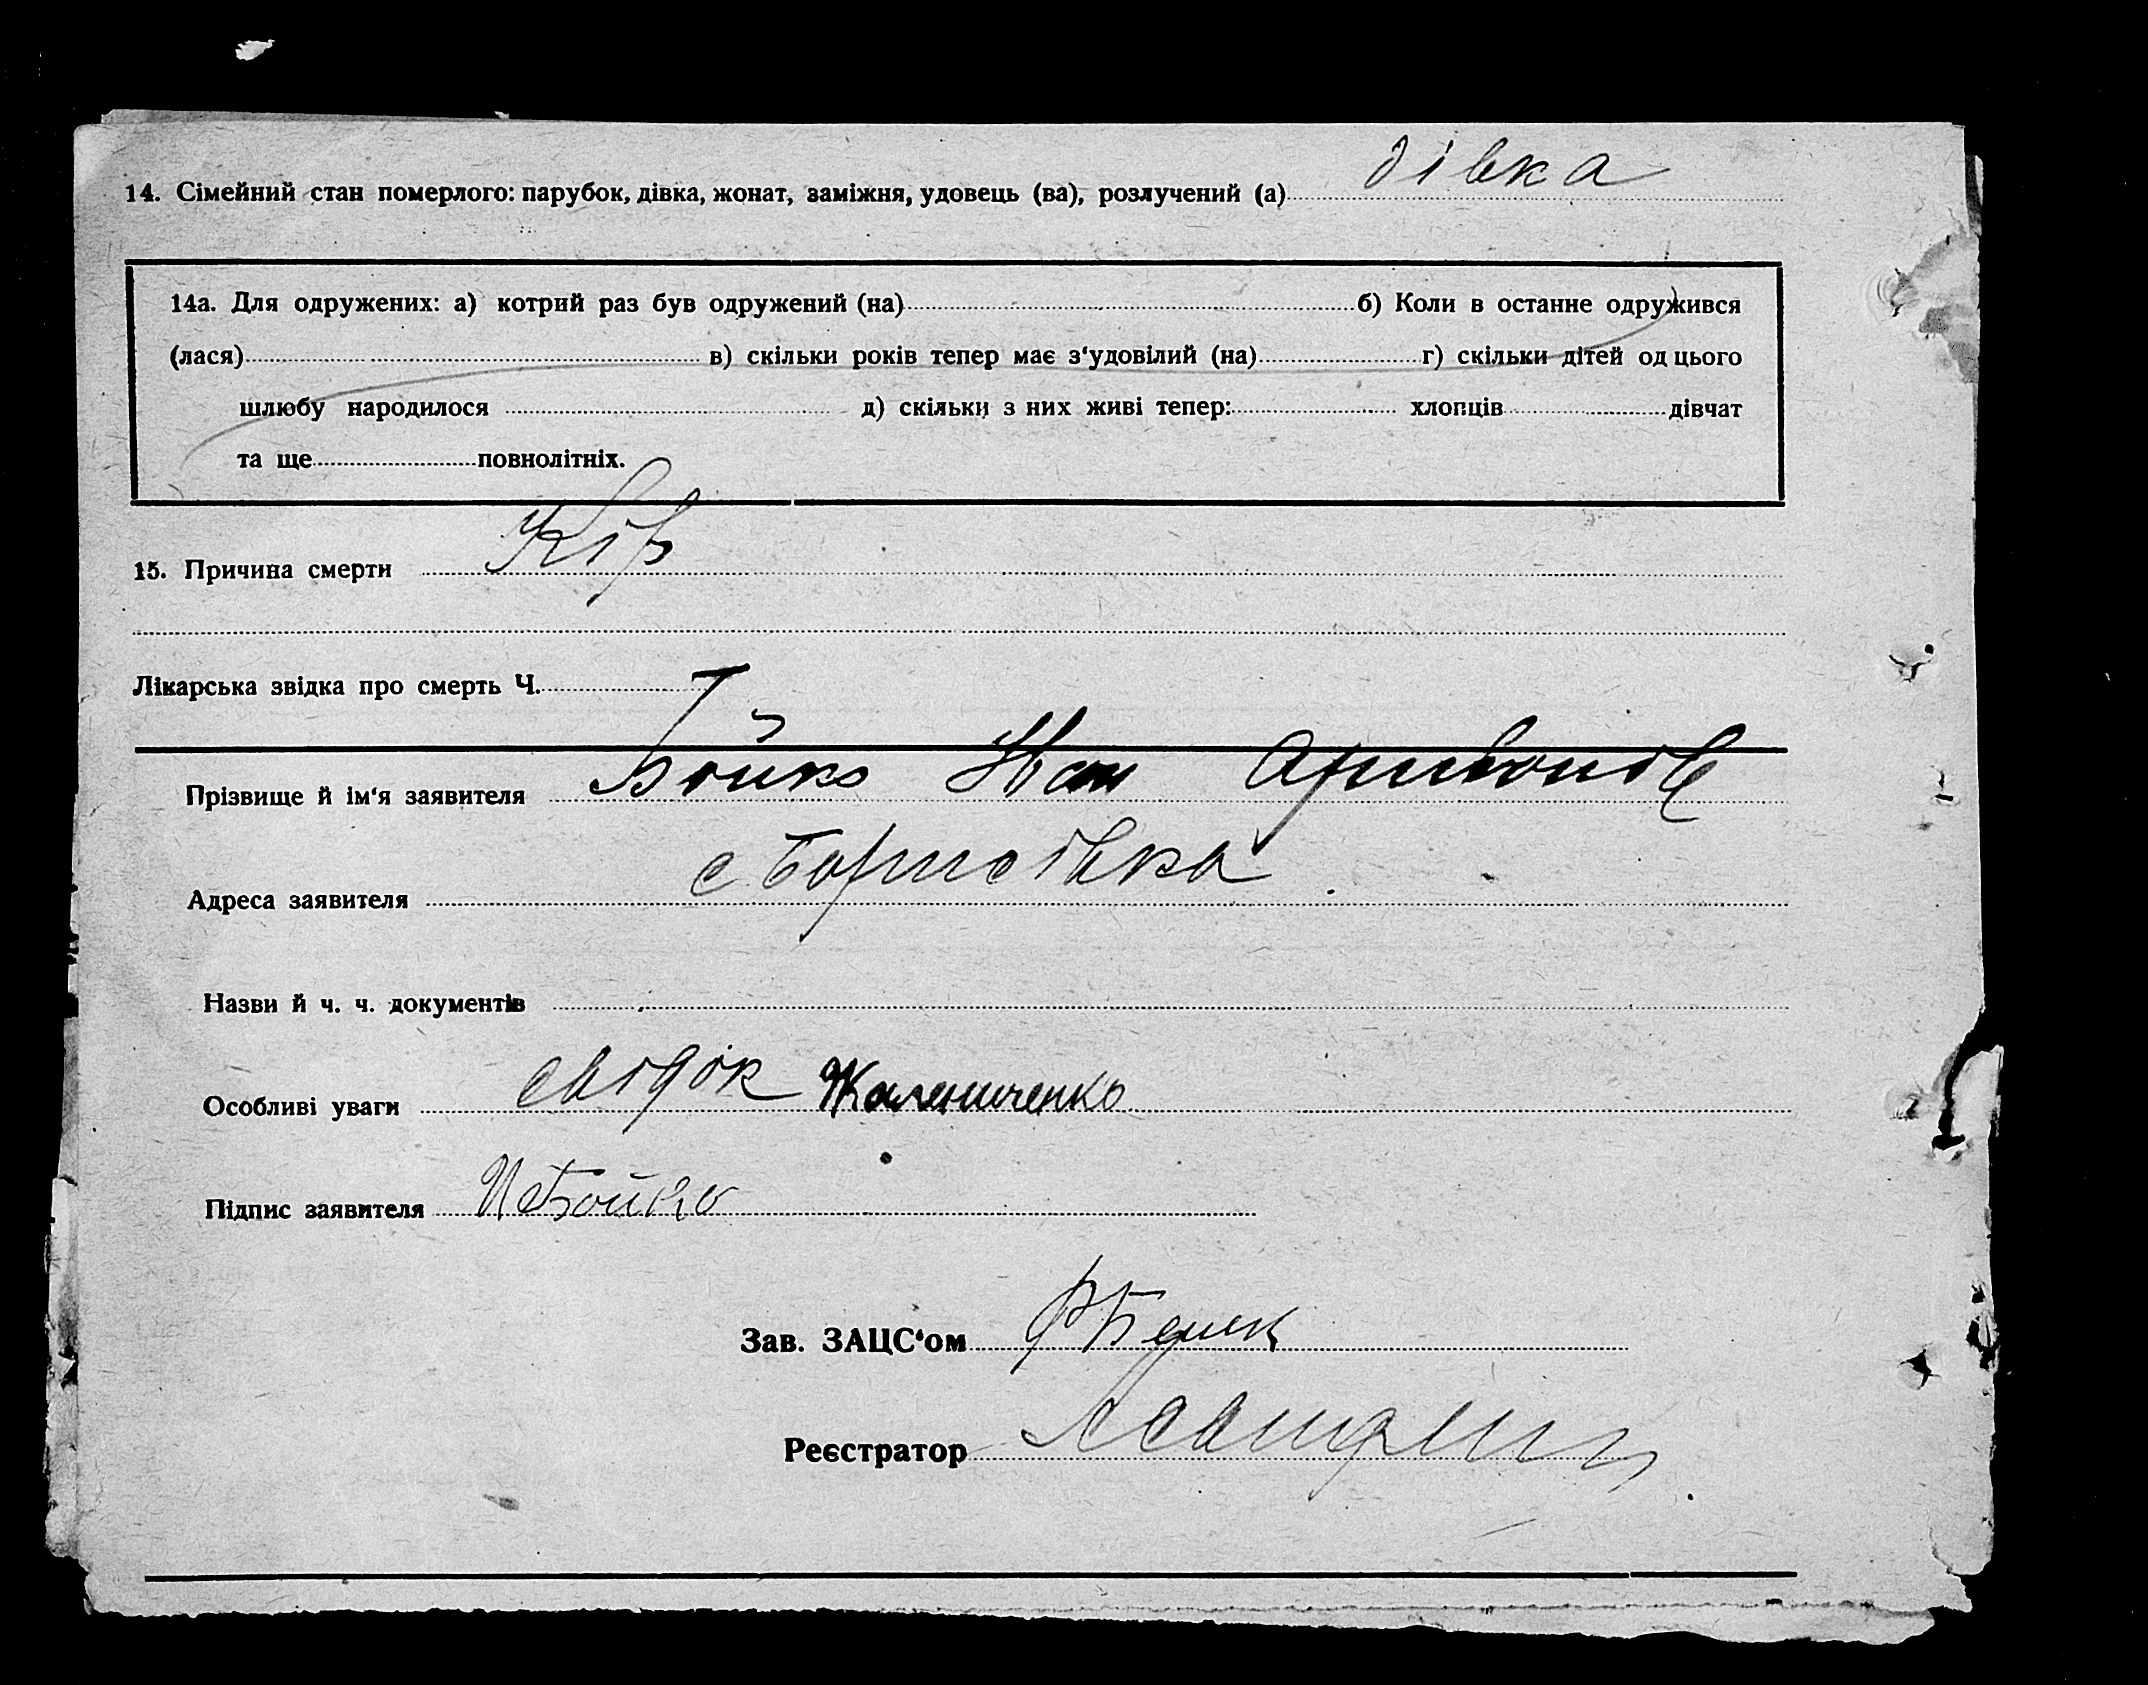 14. Сімейний стан померлого: парубок, дівка, жонат, заміжня, удовець (ва), розлучений (а) дівка
14а. Для одружених: а) котрий раз був одружений (на) б) Коли в останнє одружився
(лася) в) скільки років тепер має з'удовілий (на) г) скільки дітей од цього
шлюбу народилося д) скільки з них живі тепер: хлопців дівчат
та ще повнолітніх.
15. Причина смерти Кір
Лікарська звідка про смерть Ч.
Прізвище й ім'я заявителя Бойко Иван
Адреса заявителя с Борисівка
Назви й ч. ч. документів
Особливі уваги свідок
Підпис заявителя И Бойко
Зав. ЗАЦС'ом
Реєстратор